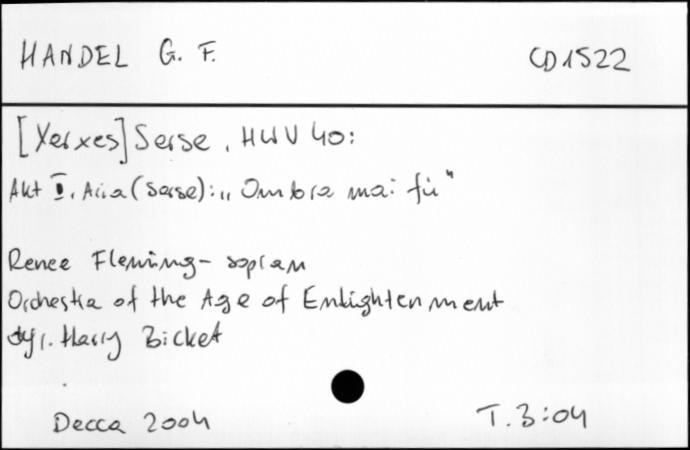 HANDEL G. F. CD1522
[Xerxes] Serse, HWV 40:
Akt I. Aria (Serse): „Ombra mai fù"
Renee Fleming - sopran
Orchestra of the Age of Enlightenment
dyr. Harry Bicket
Decca 2004 T. 3:04